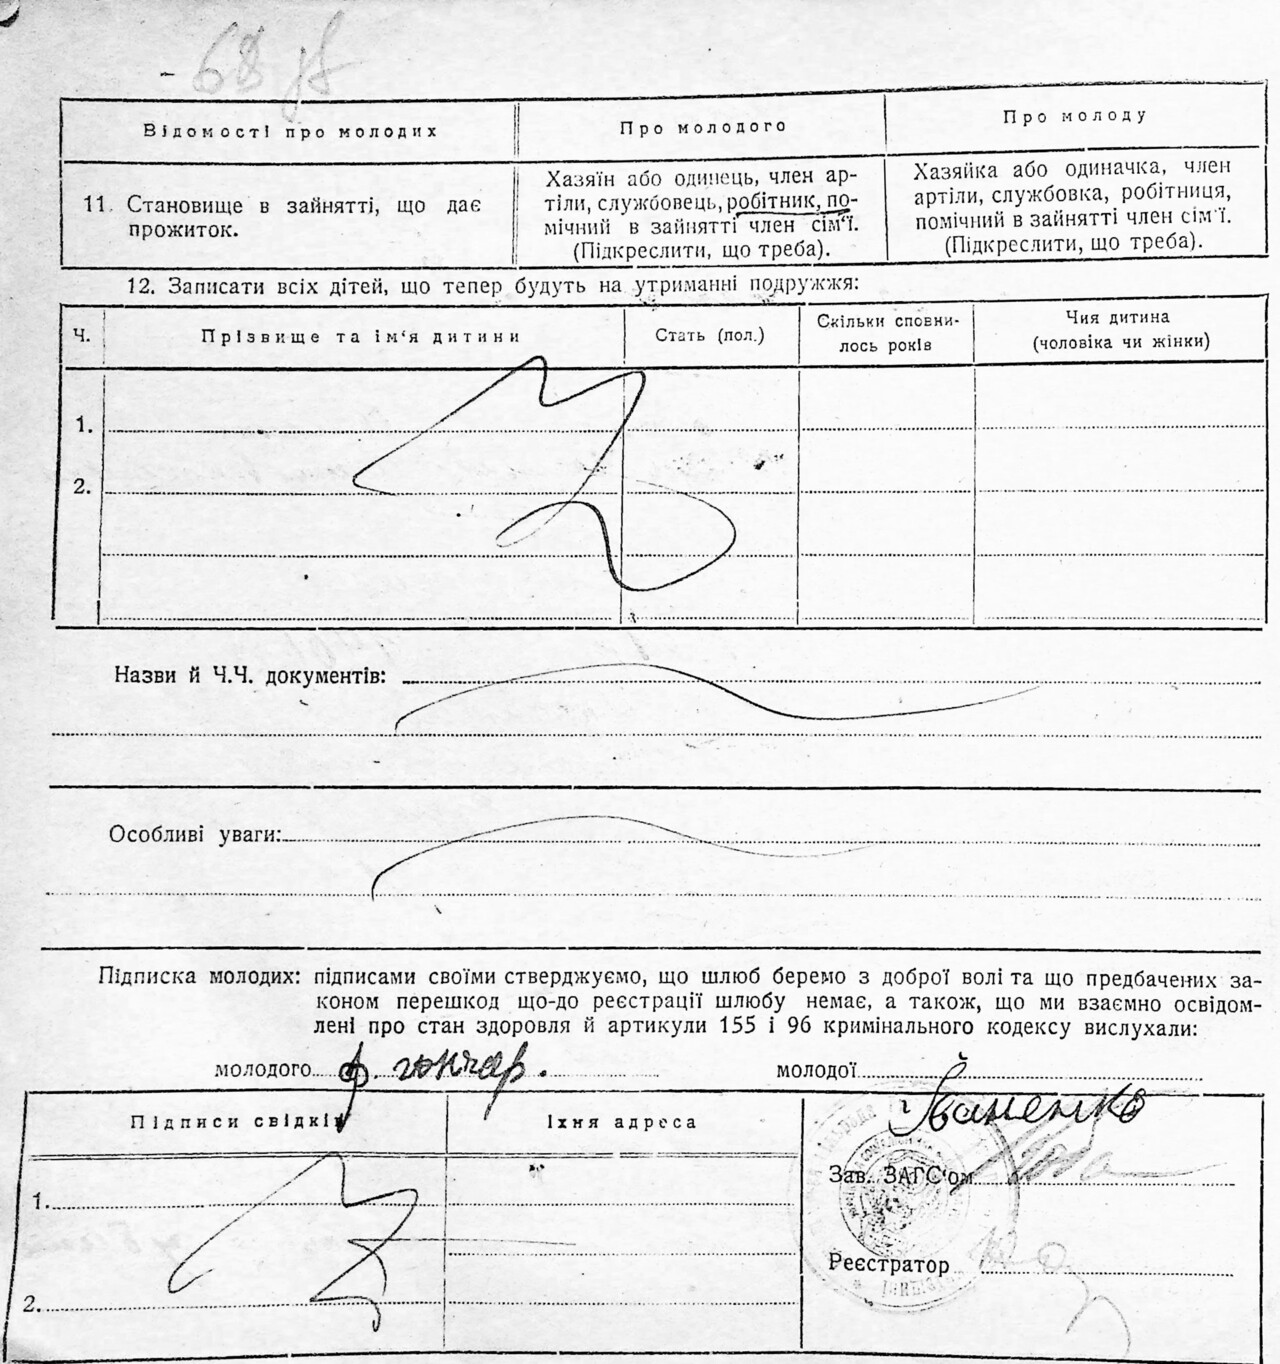 68
Відомості про молодих
Про молодого
Про молоду
11. Становище в зайнятті, що дає
прожиток.
Хазяїн або одинець, член ар-
тіли, службовець, робітник, по-
мічний в зайнятті член сім'ї.
(Підкреслити, що треба).
Хазяйка або одиначка, член
артіли, службовка, робітниця,
помічний в зайнятті член сім'ї.
(Підкреслити, що треба).
12. Записати всіх дітей, що тепер будуть на утриманні подружжя:
Ч.
Прізвище та ім'я дитини
Стать (пол.)
Скільки сповни-
лось років
Чия дитина
(чоловіка чи жінки)
1.
2.
Назви й Ч.Ч. документів:
Особливі уваги:
Підписка молодих: підписами своїми стверджуємо, що шлюб беремо з доброї волі та що предбачених за-
коном перешкод що-до реєстрації шлюбу немає, а також, що ми взаємно освідом-
лені про стан здоровля й артикули 155 і 96 кримінального кодексу вислухали:
молодого Ф. гончар.
молодої Іваненко
Підписи свідків
Їхня адреса
1.
2.
Зав. ЗАГС'ом
Реєстратор